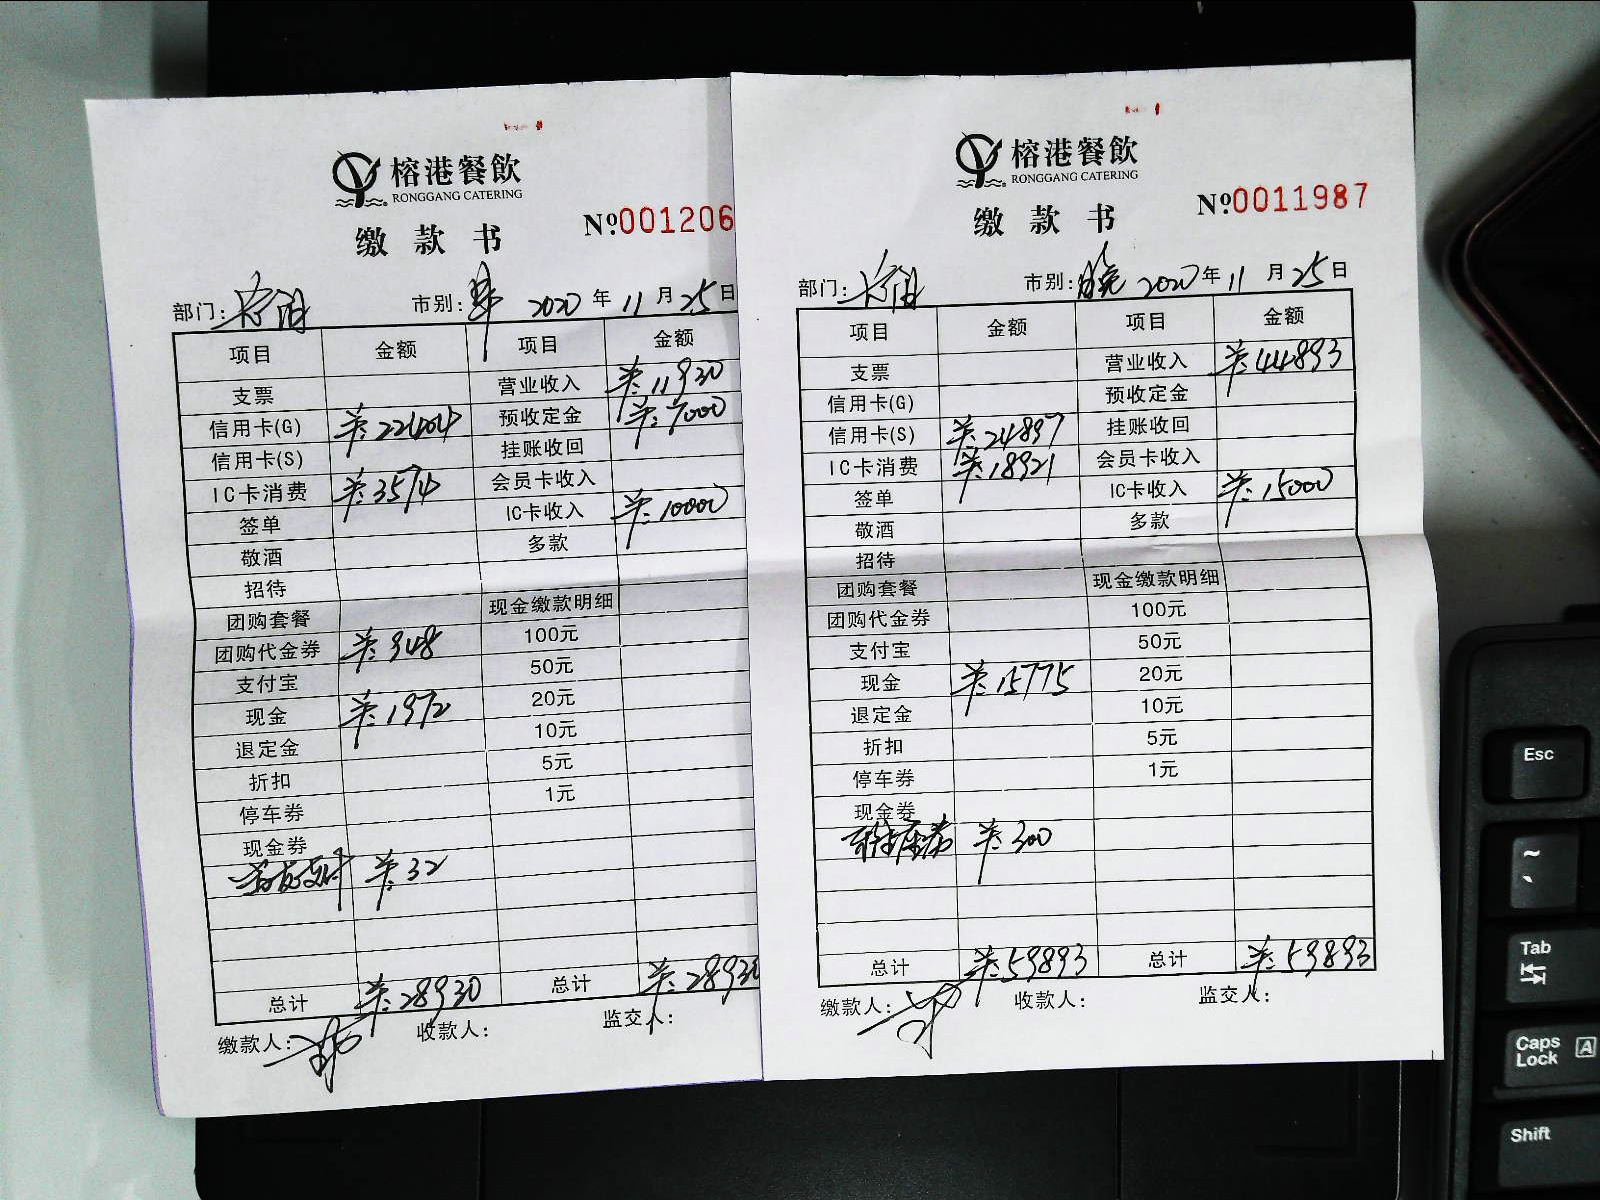 榕港餐飲
RONGGANG CATERING
缴款书
№001206
部门:
市别: 2020年11月25日
项目 金额 项目 金额
支票 营业收入 羊:11930
信用卡(G) 羊:22404 预收定金 羊:7000
信用卡(S) 挂账收回
IC卡消费 羊:3574 会员卡收入
签单 IC卡收入 羊:10000
敬酒 多款
招待
团购套餐 现金缴款明细
团购代金券 羊:948 100元
支付宝 50元
现金 羊:1972 20元
退定金 10元
折扣 5元
停车券 1元
现金券
支付 羊:32
总计 羊:28930 总计 羊:28930
缴款人: 收款人: 监交人:
榕港餐飲
RONGGANG CATERING
缴款书
№0011987
部门:
市别:晚 2020年11月25日
项目 金额 项目 金额
支票 营业收入 羊:44893
信用卡(G) 预收定金
信用卡(S) 羊:24897 挂账收回
IC卡消费 羊:18921 会员卡收入
签单 IC卡收入 羊:15000
敬酒 多款
招待
团购套餐 现金缴款明细
团购代金券 100元
支付宝 50元
现金 羊:15775 20元
退定金 10元
折扣 5元
停车券 1元
现金券
羊:300
总计 羊:59893 总计 羊:59893
缴款人: 收款人: 监交人:
Esc
~
Tab
Caps Lock A
Shift